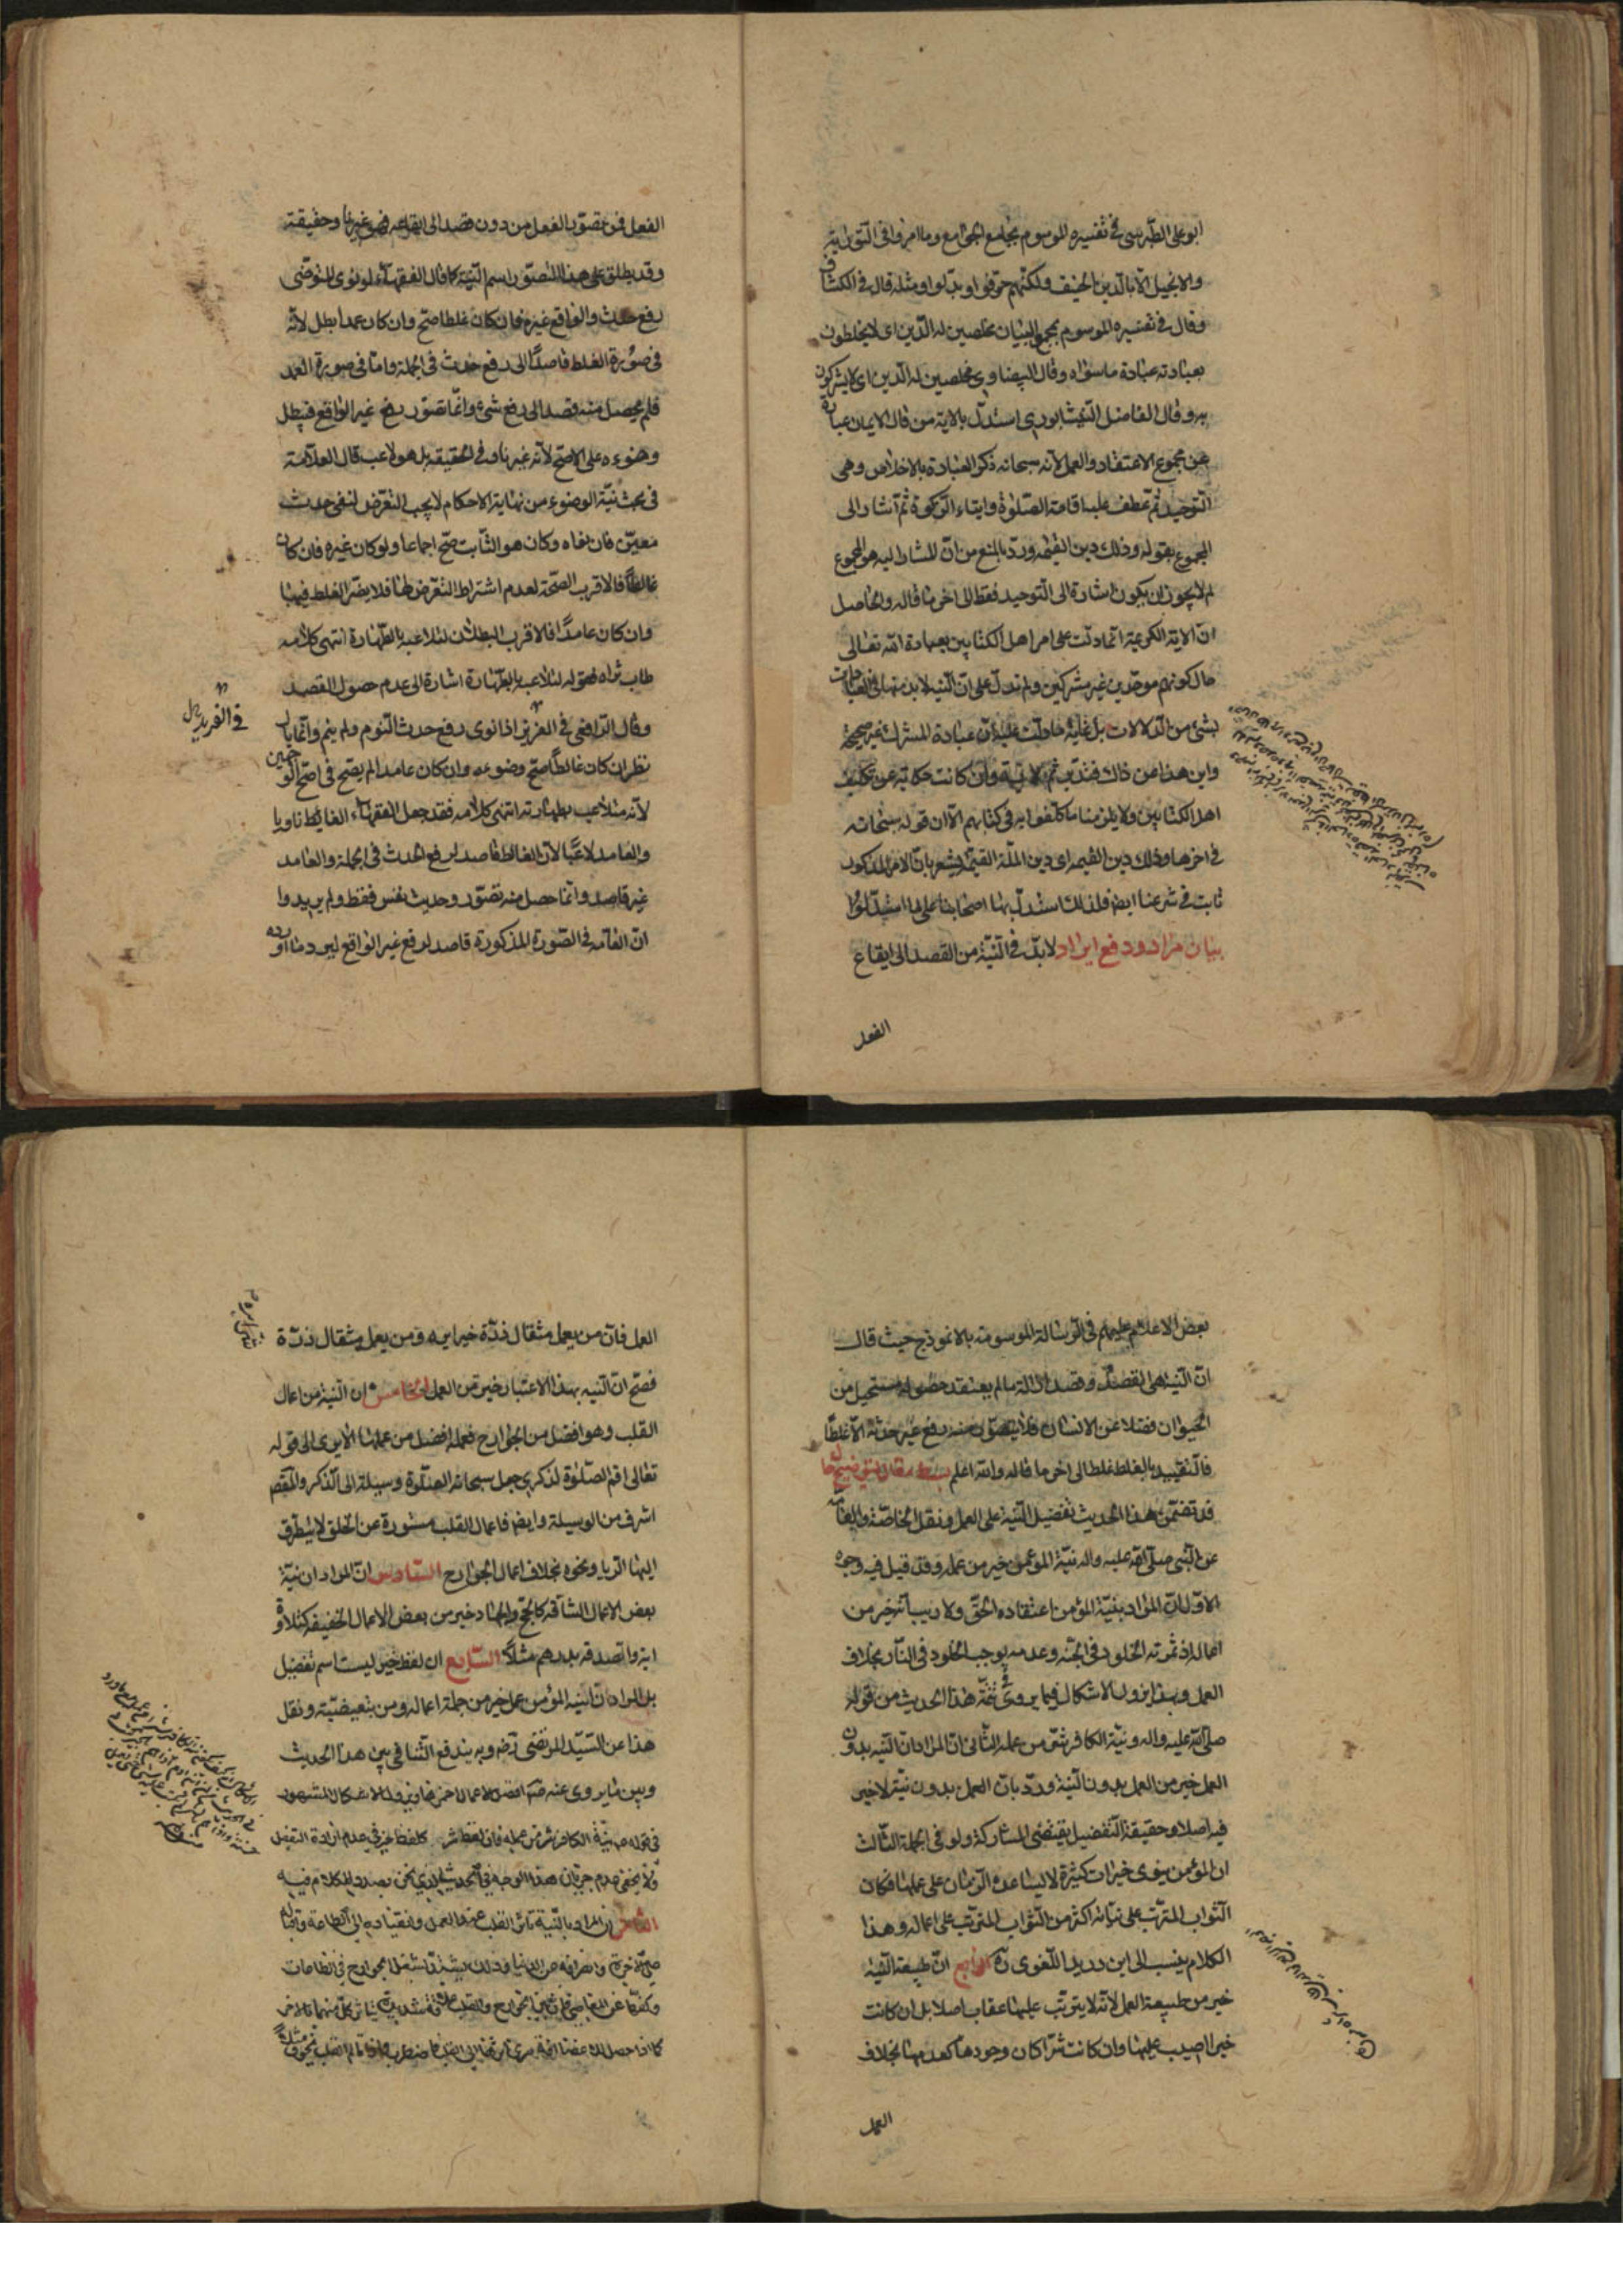 ابو على الطبرسى فى تفسيره الموسوم بجامع الجوامع وما امروا فى التورية
والانجيل الا بالدين الحنيف ولكنهم حرفوا وبدلوا ومثله قال فى الكشاف
وقال فى تفسيره الموسوم بمجمع البيان مخلصين له الدين اى لا يخلطون
بعبادته عبادة ما سواه وقال البيضاوى مخلصين له الدين اى لا يشركون
به وقال الفاضل النيشابورى استدل بالاية من قال الايمان عبارة
عن مجموع الاعتقاد والعمل لانه سبحانه ذكر العبادة بالاخلاص وهى
التوحيد ثم عطف عليه اقامة الصلوة وايتاء الزكوة ثم اشار الى
المجموع بقوله وذلك دين القيمة ورد بالمنع من ان المشار اليه هو المجموع
لم لا يجوز ان يكون اشارة الى التوحيد فقط الى اخر ما قاله والحاصل
ان الاية الكريمة انما دلت على امر اهل الكتابين بعبادة الله تعالى
حال كونهم موحدين غير مشركين ولم تدل على ان النية لا بد منها فى العبادات
بشئ من الدلالات بل غاية ما دلت عليه ان عبادة المشرك غير صحيحة
واين هذا من ذاك فتدبر ثم الاية وان كانت حكاية عن تكليف
اهل الكتابين ولا يلزمنا ما كلفوا به فى كتابهم الا ان قوله سبحانه
فى اخرها وذلك دين القيمة اى دين الملة القيمة يشعر بان الامر المذكور
ثابت فى شرعنا ايضا فلذلك استدل بها اصحابنا على ما استدلوا
بيان مراد ودفع ايراد لا بد فى النية من القصد الى ايقاع
الفعل
الفعل فمن تصور الفعل من دون قصد الى ايقاعه فهو غير ناو حقيقة
وقد يطلق على هذا التصور اسم النية كما قال الفقهاء لو نوى المتوضى
رفع حدث والواقع غيره فان كان غلطا صح وان كان عمدا بطل لانه
فى صورة الغلط قاصد الى رفع حدث فى الجملة واما فى صورة العمد
فلم يحصل منه قصد الى رفع شئ وانما تصور رفع غير الواقع فيبطل
وضوءه على الاصح لانه غير ناو فى الحقيقة بل هو لاعب قال العلامة
فى بحث نية الوضوء من نهاية الاحكام لا يجب التعرض لنفى حدث
معين فان نفاه وكان هو الثابت صح اجماعا ولو كان غيره فان كان
غالطا فالاقرب الصحة لعدم اشتراط التعرض لها فلا يضر الغلط فيها
وان كان عامدا فالاقرب البطلان لتلاعبه بالطهارة انتهى كلامه
طاب ثراه فقوله لتلاعبه بالطهارة اشارة الى عدم حصول القصد
وقال الرافعى فى العزيز اذا نوى رفع حدث النوم ولم ينم وانما بال
نظر ان كان غالطا صح وضوءه وان كان عامدا لم يصح فى اصح الوجهين
لانه متلاعب بطهارته انتهى كلامه فقد جعل الفقهاء الغالط ناويا
والعامد لاعبا لان الغالط قاصد لرفع الحدث فى الجملة والعامد
غير قاصد وانما حصل منه تصور وحديث نفس فقط ولم يريدوا
ان العامد فى الصورة المذكورة قاصد لرفع غير الواقع ليرد ما اورده
بعض الاعلام عليهم فى الرسالة الموسومة بالانموذج حيث قال
ان النية هى القصد وقصد ازالة ما لم يعتقد حصوله مستحيل من
الحيوان فضلا عن الانسان فلا يتصور منه رفع غير حدثه الا غلطا
فالتقييد بالغلط غلط الى اخر ما قاله والله اعلم بسط مقال لتوضيح حال
قد تضمن هذا الحديث تفضيل النية على العمل ونقل الخاصة والعامة
عن النبى صلى الله عليه واله نية المؤمن خير من عمله وقد قيل فيه وجوه
الاول ان المراد بنية المؤمن اعتقاده الحق ولا ريب انه خير من
اعماله اذ ثمرته الخلود فى الجنة وعدمه يوجب الخلود فى النار بخلاف
العمل وبهذا يزول الاشكال فيما يروى تتمة هذا الحديث من قوله
صلى الله عليه واله ونية الكافر شر من عمله الثانى ان المراد ان النية بدون
العمل خير من العمل بدون النية ورد بان العمل بدون نية لا خير
فيه اصلا وحقيقة التفضيل يقتضى المشاركة ولو فى الجملة الثالث
ان المؤمن ينوى خيرات كثيرة لا يساعده الزمان على عملها فكان
الثواب المترتب على نياته اكثر من الثواب المترتب على اعماله وهذا
الكلام ينسب الى ابن دريد اللغوى ره الرابع ان طبيعة النية
خير من طبيعة العمل لانه لا يترتب عليها عقاب اصلا بل ان كانت
خيرا اصيب عليها وان كانت شرا كان وجودها كعدمها بخلاف
العمل
العمل فان من يعمل مثقال ذرة خيرا يره ومن يعمل مثقال ذرة
فصح ان النية بهذا الاعتبار خير من العمل الخامس ان النية من اعمال
القلب وهو افضل من الجوارح فعمله افضل من عملها الا يرى الى قوله
تعالى اقم الصلوة لذكرى جعل سبحانه الصلوة وسيلة الى الذكر والمقصد
اشرف من الوسيلة وايضا فاعمال القلب مستورة عن الخلق لا يتطرق
اليها الريا ونحوه بخلاف اعمال الجوارح السادس ان المراد ان نية
بعض الاعمال الشاقة كالحج والجهاد خير من بعض الاعمال الخفيفة كتلاوة
اية والصدقة بدرهم مثلا السابع ان لفظ خير ليست اسم تفضيل
بل المراد ان نية المؤمن عمل خير من جملة اعماله ومن تبعيضية ونقل
هذا عن السيد المرتضى رضه وبه يندفع التنافى بين هذا الحديث
وبين ما يروى عنه ص افضل الاعمال احمزها ويزول الاشكال المشهور
فى قوله ص نية الكافر شر من عمله فان لفظ شر كلفظ خير فى عدم ارادة التفضيل
ولا يخفى عدم جريان هذا الوجه فى الحديث الذى نحن بصدد الكلام فيه
الثامن ان المراد بالنية تاثر القلب عند العمل وانقياده الى الطاعة واقباله
على الاخرة وانصرافه عن الدنيا وذلك يشتد بشغل الجوارح فى الطاعات
وكفها عن المعاصى فان بين الجوارح والقلب علاقة شديدة يتاثر كل منهما بالاخر
كما اذا حصل للاعضاء افة سرى اثرها الى القلب فاضطرب واذا تالم القلب بخوف مثلا